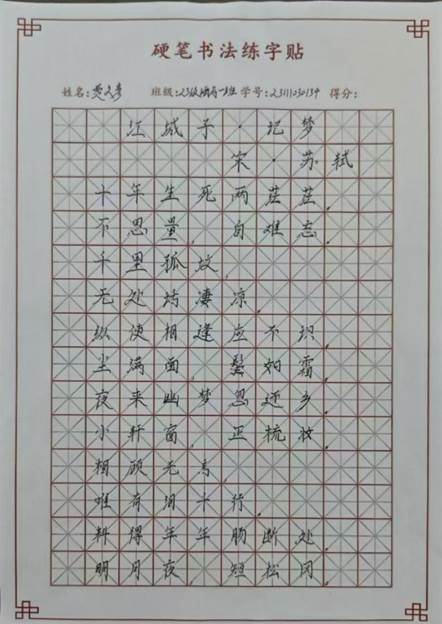 硬笔书法练字贴
姓名: 班级: 学号:2311230139 得分:
江城子·记梦
宋·苏轼
十年生死两茫茫，
不思量，自难忘。
千里孤坟，
无处话凄凉。
纵使相逢应不识，
尘满面，鬓如霜。
夜来幽梦忽还乡，
小轩窗，正梳妆。
相顾无言，
唯有泪千行。
料得年年肠断处，
明月夜，短松冈。